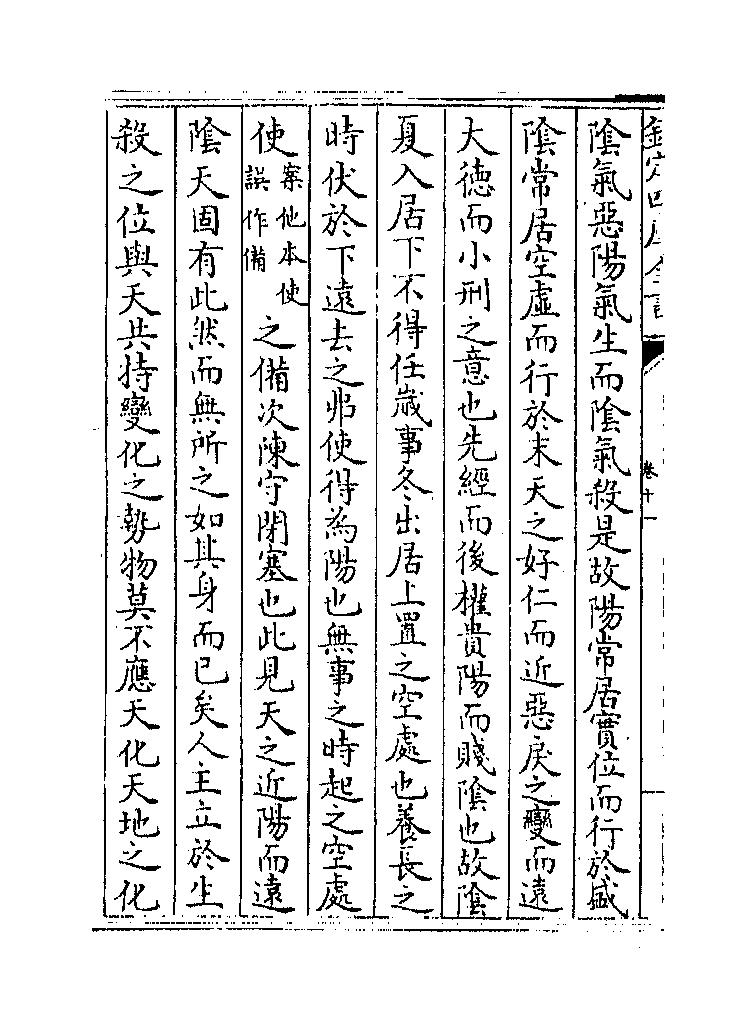 欽定四庫全書
卷十一
陰氣惡陽氣生而陰氣殺是故陽常居實位而行於盛
陰常居空虛而行於末天之好仁而近惡戾之變而遠
大德而小刑之意也先經而後權貴陽而賤陰也故陰
夏入居下不得任歲事冬出居上置之空處也養長之
時伏於下遠去之弗使得為陽也無事之時起之空處
使案他本使誤作備之備次陳守閉塞也此見天之近陽而遠
陰天固有此然而無所之如其身而已矣人主立於生
殺之位與天共持變化之勢物莫不應天化天地之化